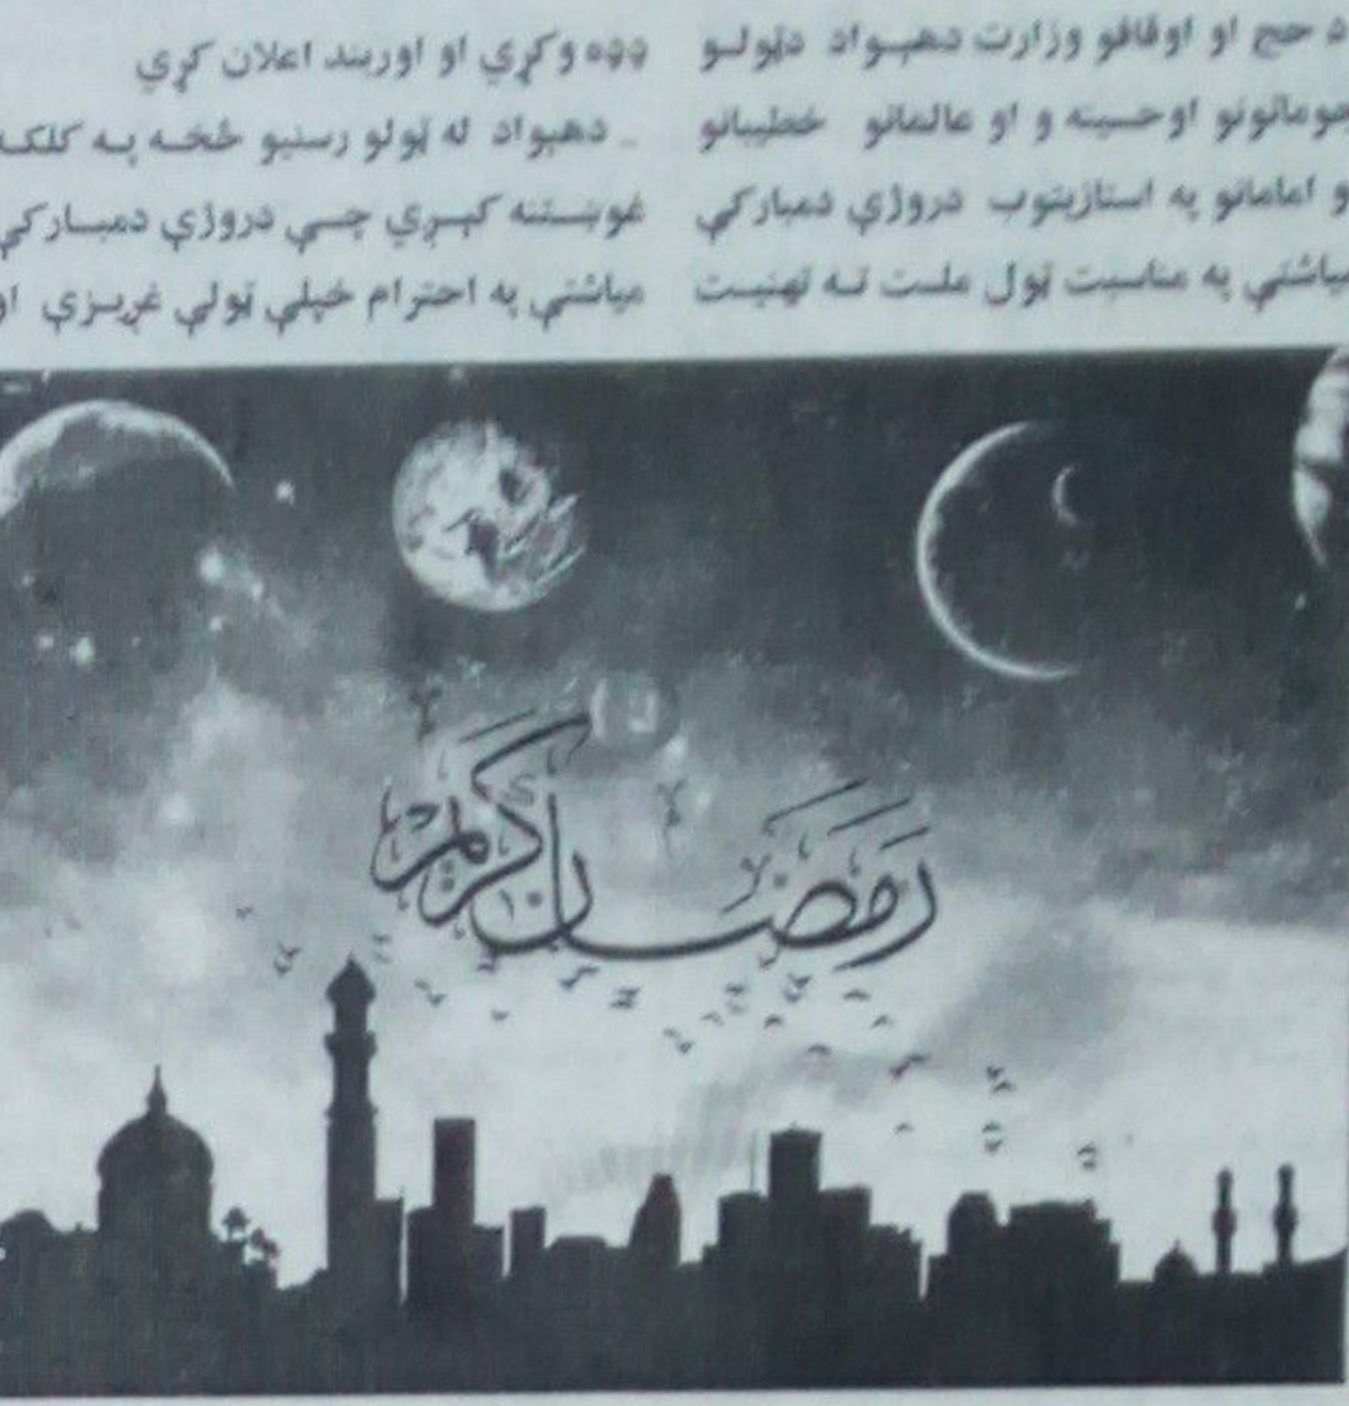 د حج او اوقافو وزارت دهېواد دټولو
جوماتونو اوحسینه و او عالمانو خطیبانو
و امامانو په استازیتوب دروژې دمبارکې
میاشتې په مناسبت ټول ملت ته تهنیت
ډډه وکړي او اوربند اعلان کړي
_ دهېواد له ټولو رسنیو څخه په کلکه
غوښتنه کېږي چې دروژې دمبارکې
میاشتې په احترام خپلې ټولې غږیزې او
رمضان كريم